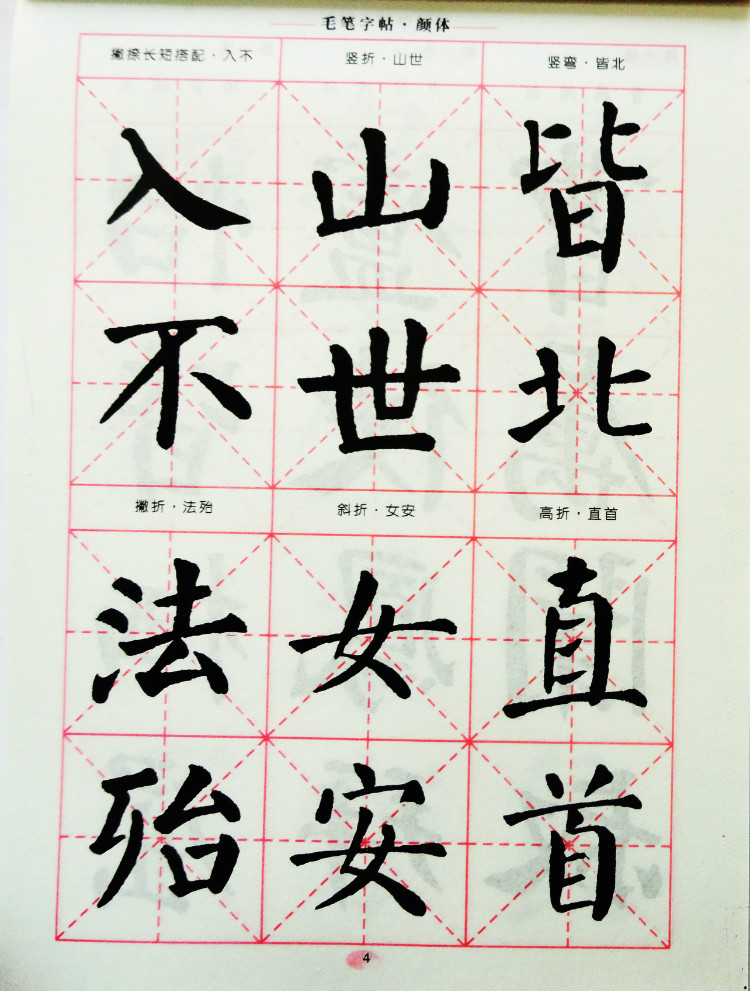 毛笔字帖·颜体
撇捺长短搭配·入不 竖折·山世 竖弯·皆北
入 山 皆
不 世 北
撇折·法殆 斜折·女安 高折·直首
法 女 直
殆 安 首
4